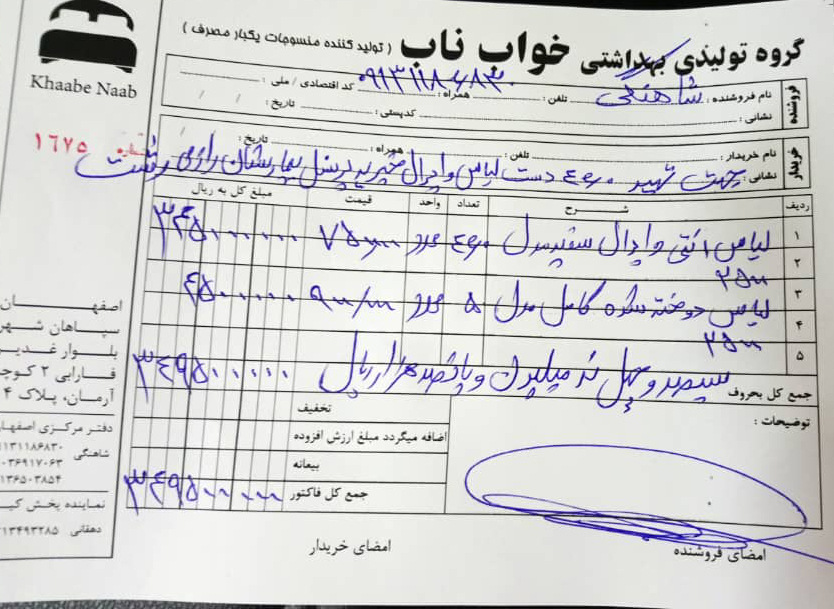 گروه تولیدی بهداشتی خواب ناب ( تولید کننده منسوجات یکبار مصرف )
Khaabe Naab
فروشنده
نام فروشنده : شاهنگی تلفن : همراه : ۰۹۱۳۱۱۸۶۸۳۰ کد اقتصادی / ملی :
نشانی : کدپستی : تاریخ : / /
خریدار
نام خریدار : تلفن : همراه : تاریخ :
شماره ۱۶۷۵
نشانی : جهت تهیه دست لباس و ادرال جهت پرسنل بیمارستان رازی رشت
ردیف شرح تعداد واحد قیمت مبلغ کل به ریال
۱ لباس ادرال سفید مدل عدد ۷۵۰۰۰۰
۲ ۲۵۰۰
۳ لباس دوخته شده کامل مدل ۵ عدد ۹۰۰/۰۰۰ ۴۵۰۰۰۰۰
۴ ۲۵۰۰
۵
جمع کل بحروف سیصد و چهل و نه میلیون و پانصد هزار ریال ۳۴۹۵۰۰۰۰۰
توضیحات :
تخفیف
اضافه میگردد مبلغ ارزش افزوده
بیعانه
جمع کل فاکتور ۳۴۹۵۰۰۰۰۰
امضای فروشنده
امضای خریدار
اصفهان
سپاهان شهر
بلوار غدیر
فارابی ۲ کوچه
آرمان، پلاک ۴
دفتر مرکزی اصفهان
شاهنگی ۹۱۳۱۱۸۶۸۳۰
۰۳۶۹۱۷۰۶۳
۱۳۶۵۰۳۸۵۴
نماینده پخش کیـ
دهقانی ۱۳۴۹۳۲۸۵